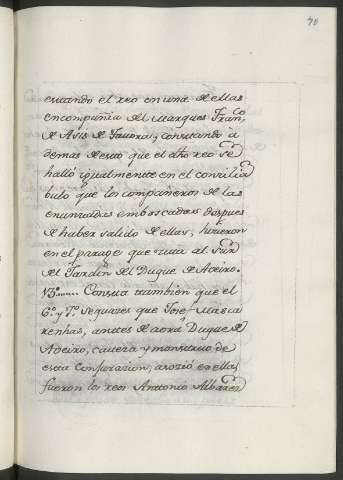 70
estando el reo en una de ellas
en compañia del Marques Fran.co
de Asis de Tavora; constando à
demas de esto que el dho reo se
halló igualmente en el concilia
bulo que los compañeros de las
enunciadas emboscadas despues
de haber salido de ellas, hicieron
en el parage que mira al Sur
del Jardin del Duque de Aveiro.
13º....... Consta tambien que el
6º. y 7º. Sequaces que Josef Masca
renhas, antes de aora Duque de
Aveiro, cavera y monstruo de
esta Conjuracion, asoció en ellas
fueron los reos Antonio Albares